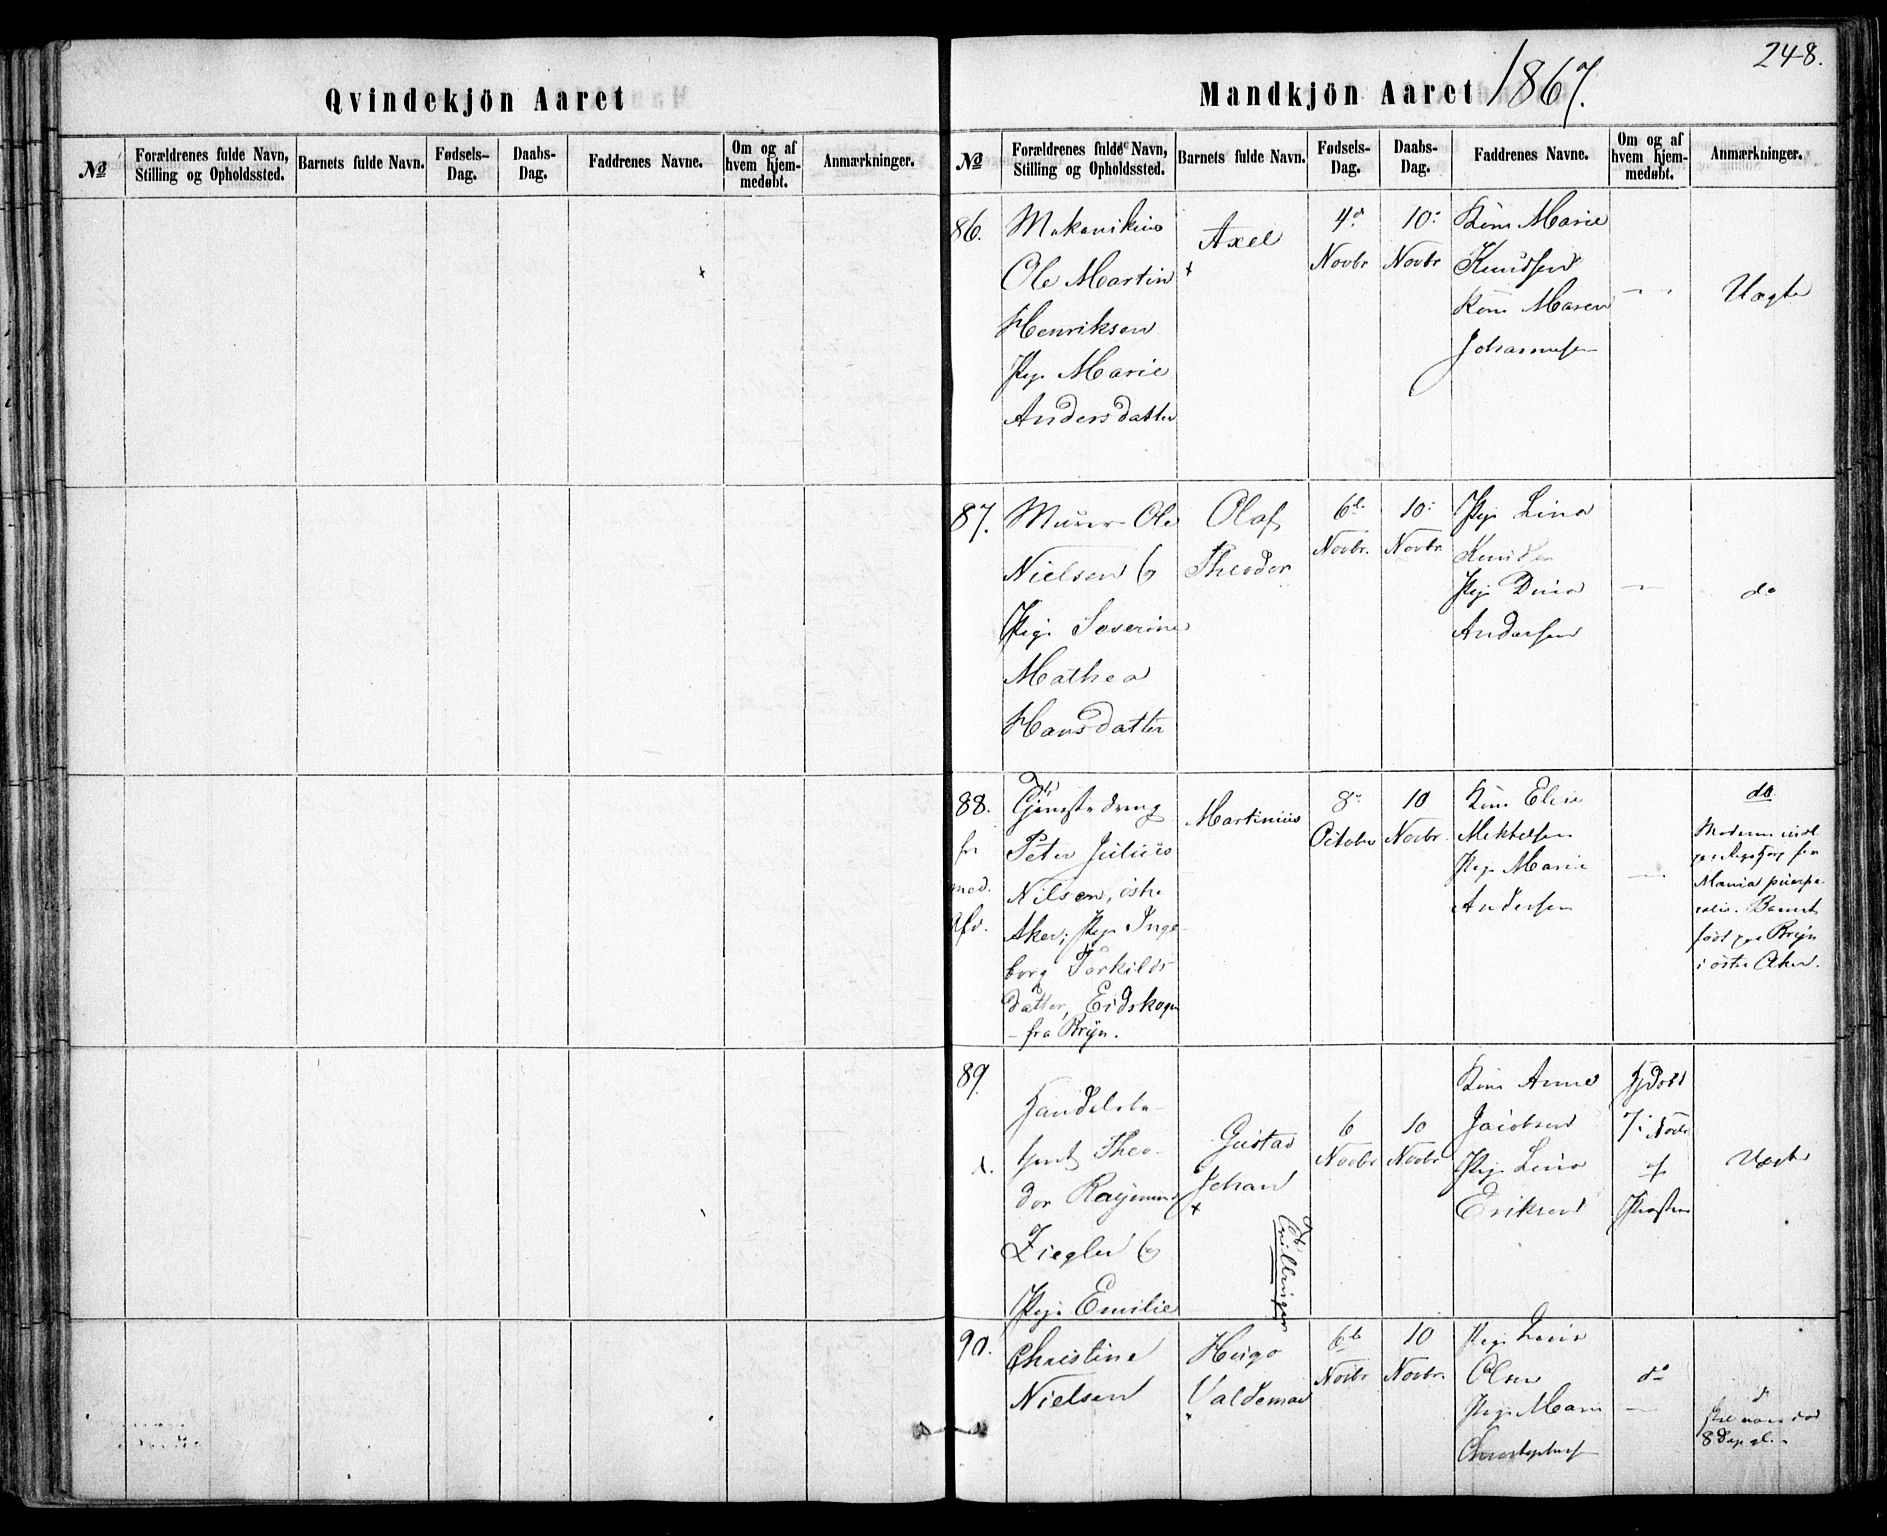 Qvindekjön Aaret
№
Forældrenes fulde Navn, Stilling og Opholdssted.
Barnets fulde Navn.
Fødsels-Dag.
Daabs-Dag.
Faddrenes Navne.
Om og af hvem hjem-medøbt.
Anmærkninger.
248.
Mandkjön Aaret 1867.
№
Forældrenes fulde Navn, Stilling og Opholdssted.
Barnets fulde Navn.
Fødsels-Dag.
Daabs-Dag.
Faddrenes Navne.
Om og af hvem hjem-medøbt.
Anmærkninger.
86.
Mekanikus
Ole Martin
Henriksen
Pige Marie
Andersdatter
Axel
4de
Novbr
10
Novbr
Kone Marie
Knudsen
Kone Maren
Johannesen
Uægte
87.
Murer Ole
Nielsen &
Pige Severine
Mathea
Hansdatter
Olaf
Theodor
6te
Novbr.
10
Novbr
Pige Lina
Knudsen
Pige Dina
Andersen
do
88.
Tjenestedreng
Peter Julius
Nilsen, østre
Aker; Pige Inge
borg Torkilds
datter, Eidskogen
fra Bryn.
Martinius
8
October
10
Novbr.
Kone Elise
Pige Marie
Andersen
do
Moderen
Mania puerpe-
ralis. Barnet
født paa Bryn
i østre Aker.
89.
Handelsbe-
tjent Theo-
dor Raymund
Ziegler &
Pige Emilie
Gustav
Johan
Tvillinger
6
Novbr
10
Novbr
Kone Anne
Jacobsen
Pige Lina
Eriksen
Hjdøbt
7 Novbr
af
Præsten
Uægte
90.
Christine
Nielsen
Hugo
Valdemar
6te
Novbr
10
Novbr.
Pige
Olsen
Pige Marie
do
d
8 Dage gl.